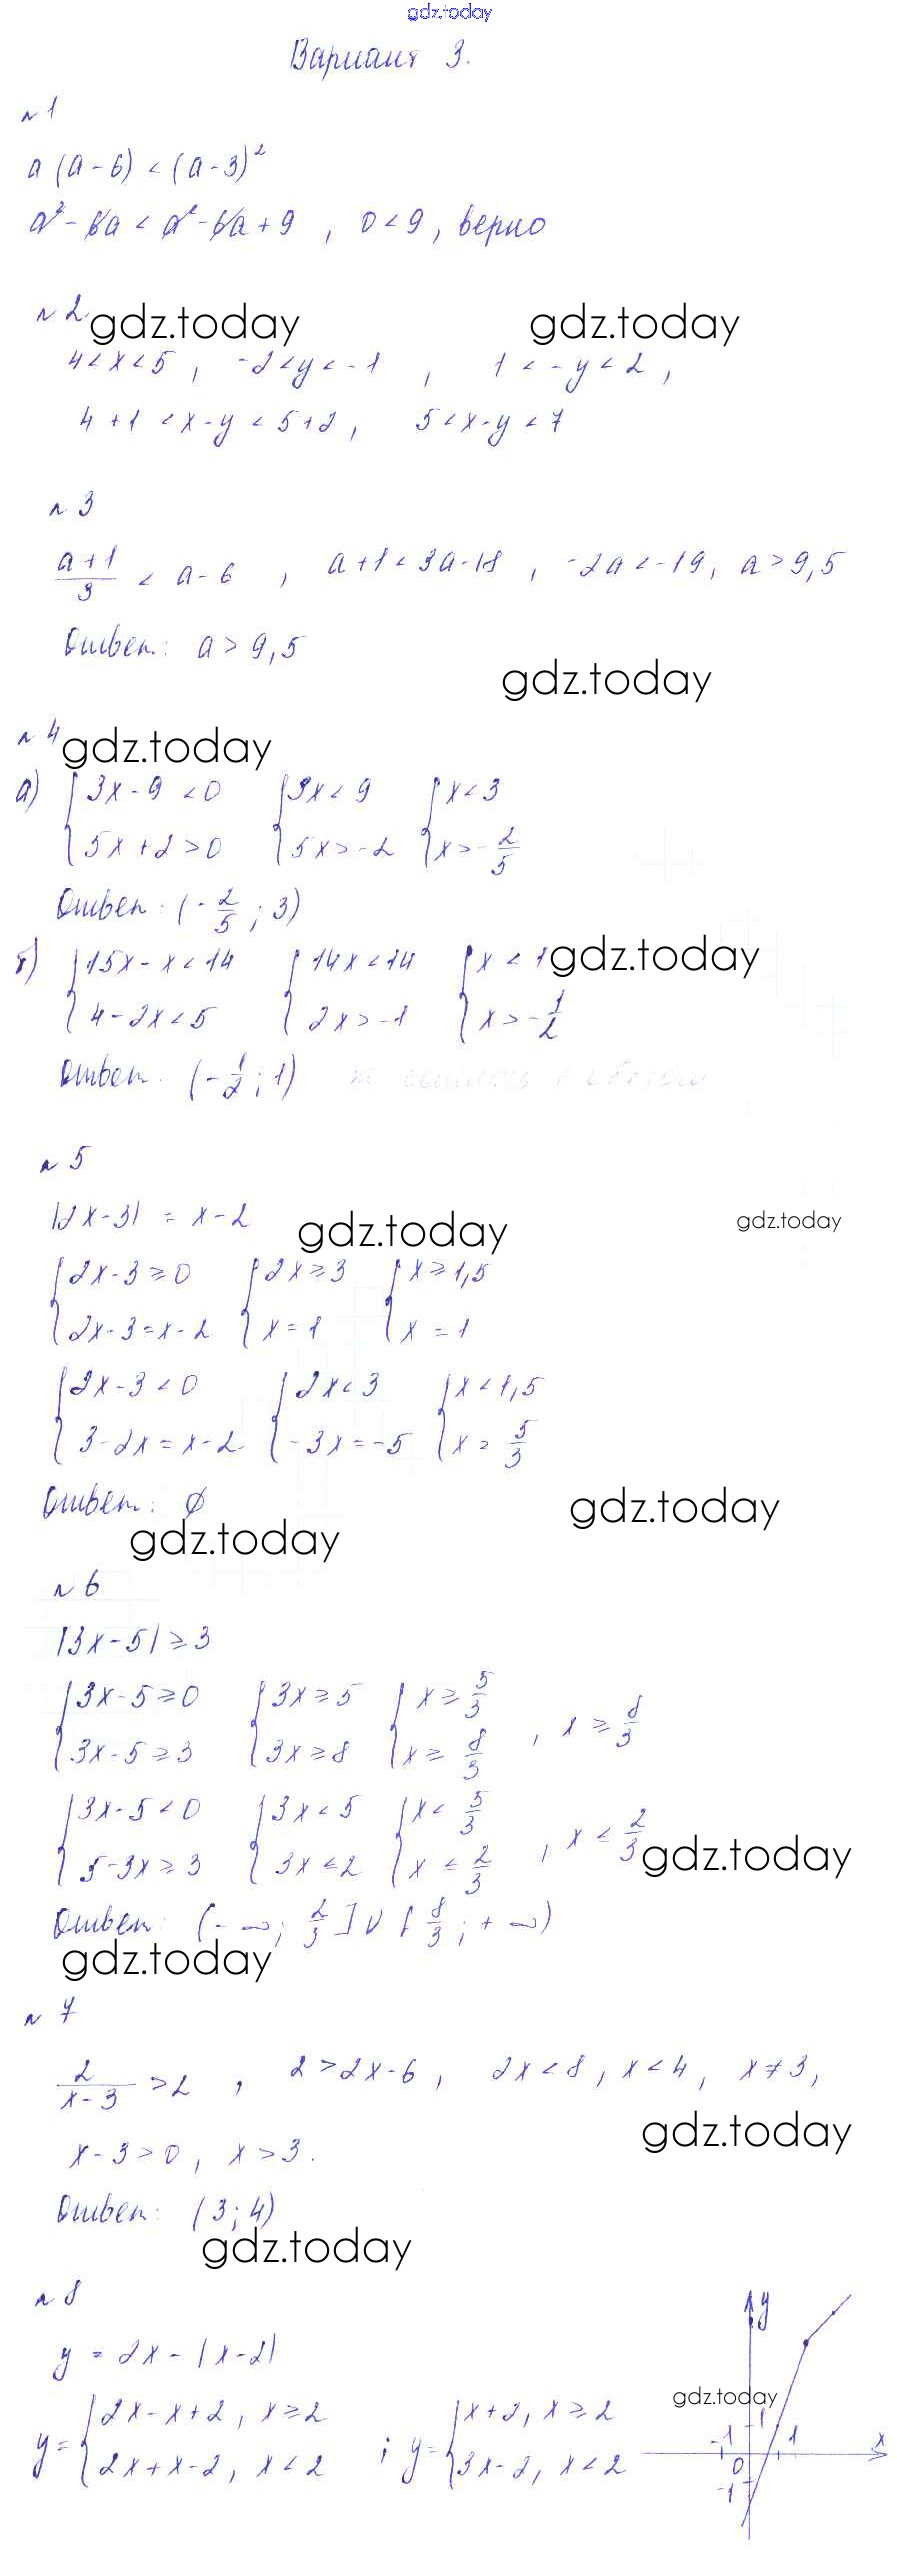 gdz.today
Вариант 3.
№ 1
a (a - 6) < (a - 3)²
a² - 6a < a² - 6a + 9 , 0 < 9 , верно
№ 2
gdz.today gdz.today
4 < x < 5 , -2 < y < -1 , 1 < -y < 2 ,
4 + 1 < x - y < 5 + 2 , 5 < x - y < 7
№ 3
(a + 1)/3 < a - 6 , a + 1 < 3a - 18 , -2a < -19 , a > 9,5
Ответ: a > 9,5
gdz.today
№ 4
gdz.today
а) { 3x - 9 < 0 { 3x < 9 { x < 3
{ 5x + 2 > 0 { 5x > -2 { x > -2/5
Ответ: (-2/5 ; 3)
б) { 15x - x < 14 { 14x < 14 { x < 1
gdz.today
{ 4 - 2x < 5 { 2x > -1 { x > -1/2
Ответ. (-1/2 ; 1)
№ 5
|2x - 3| = x - 2
gdz.today gdz.today
{ 2x - 3 ≥ 0 { 2x ≥ 3 { x ≥ 1,5
{ 2x - 3 = x - 2 { x = 1 { x = 1
{ 2x - 3 < 0 { 2x < 3 { x < 1,5
{ 3 - 2x = x - 2 { -3x = -5 { x = 5/3
Ответ: ∅
gdz.today
gdz.today
№ 6
|3x - 5| ≥ 3
{ 3x - 5 ≥ 0 { 3x ≥ 5 { x ≥ 5/3
{ 3x - 5 ≥ 3 { 3x ≥ 8 { x ≥ 8/3 , x ≥ 8/3
{ 3x - 5 < 0 { 3x < 5 { x < 5/3
{ 5 - 3x ≥ 3 { 3x ≤ 2 { x ≤ 2/3 , x ≤ 2/3
gdz.today
Ответ: (-∞; 2/3] ∪ [8/3 ; +∞)
gdz.today
№ 7
2/(x - 3) > 2 , 2 > 2x - 6 , 2x < 8 , x < 4 , x ≠ 3 ,
gdz.today
x - 3 > 0 , x > 3 .
Ответ: (3 ; 4)
gdz.today
№ 8
y = 2x - |x - 2|
gdz.today
y = { 2x - x + 2 , x ≥ 2 ; y = { x + 2 , x ≥ 2
{ 2x + x - 2 , x < 2 { 3x - 2 , x < 2
y
1
-1 1 x
0
-1